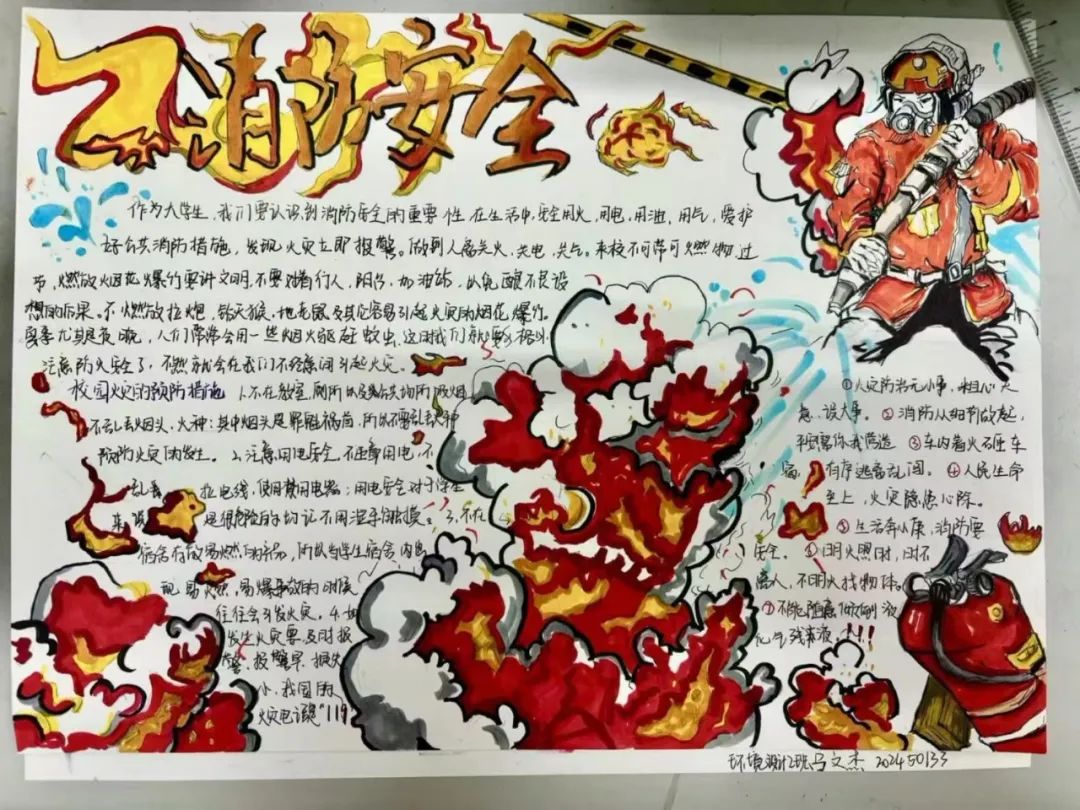 消防安全
作为大学生，我们要认识到消防安全的重要性，在生活中，安全用火，用电，用油，用气，爱护
好公共消防措施，发现火灾立即报警。做到人离关火、关电、关气。来校不可带可燃物过
节，燃放烟花爆竹要讲文明，不要对着行人，阳台，加油站，以免酿不良设
想的后果。不燃放拉炮，钻天猴，地老鼠及其它容易引起火灾的烟花爆竹。
夏季尤其是夜晚，人们常常会用一些烟火驱赶蚊虫，这时我们就要
注意防火安全了，不然就会在我们不经意间引起火灾。
校园火灾的预防措施 1.不在教室，厕所以及公共场所吸烟
不乱丢烟头，火种：其中烟头是罪魁祸首，所以不要乱丢火种
预防火灾的发生。2.注意用电安全 不违章用电，不
乱 拉电线，使用禁用电器；用电安全对于学生
来说 是很危险的，切记不用湿手 3.不在
宿舍存放易燃的物品，所以当学生宿舍内出
现易燃，易爆 的时候
往往会引发火灾。4.如
发生火灾要及时报
警，报警早，损失
小，我国的
火灾电话是“119
①火灾防治无小事，粗心大
意，误大事。②消防从细节做起，
平安靠你我营造 ③车内着火不
有序逃离乱闯。④人民生命
至上，火灾隐患心除。
⑤生活奔小康，消防要
安全。⑥明火照时，时不
饶人，不明火找物体。
⑦不能随意倾倒液
化气残余液，!!!
环境设计2班马文杰 202450133